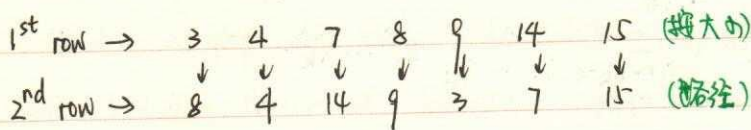 1st row → 3 4 7 8 9 14 15 (按大小)
↓ ↓ ↓ ↓ ↓ ↓ ↓
2nd row → 8 4 14 9 3 7 15 (路径)